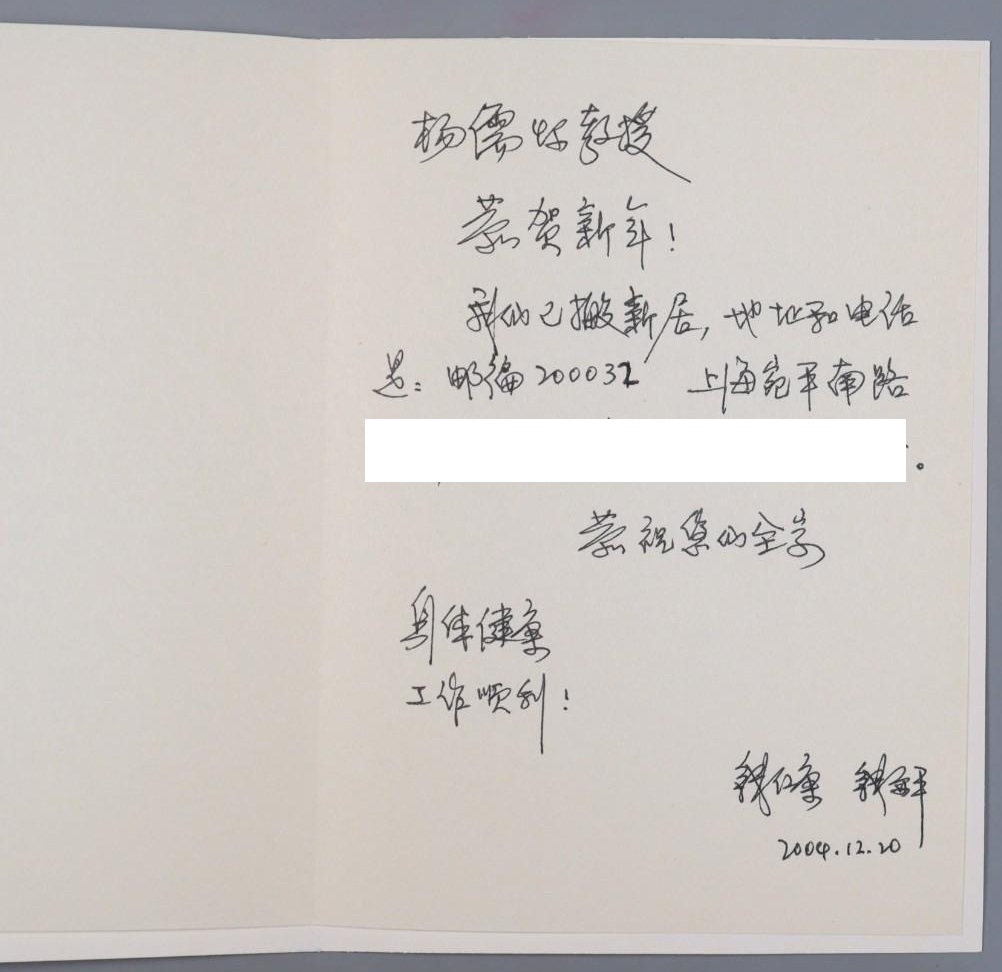 杨儒怀教授
恭贺新年!
我们已搬新居,地址和电话
是:邮编200032 上海宛平南路
。
恭祝您们全家
身体健康
工作顺利!
2004.12.20